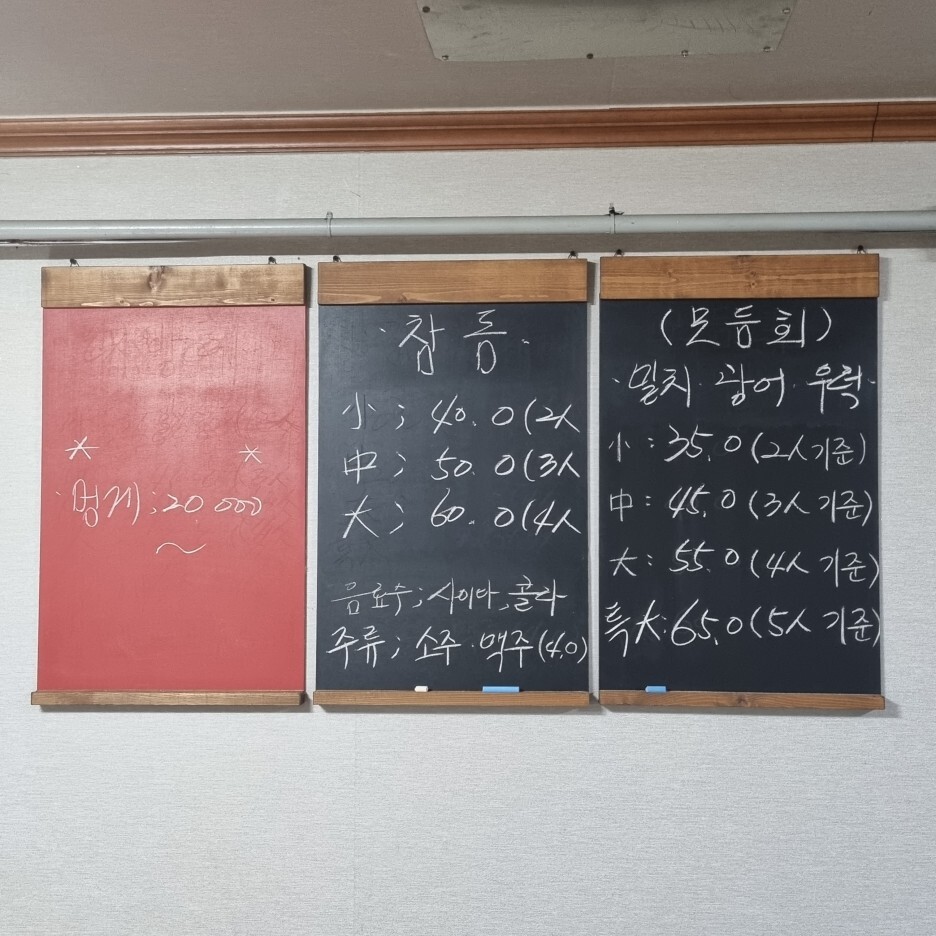 * *
· 멍게 ; 20 000
~
· 참 돔 ·
小 ; 40. 0 (2人
中 ; 50. 0 (3人
大 ; 60. 0 (4人
음료수 ; 사이다, 콜라
주류 ; 소주 · 맥주 (4.0)
(모듬회)
· 밀치 · 광어 · 우럭 ·
小 : 35.0 (2人 기준)
中 : 45.0 (3人 기준)
大 : 55.0 (4人 기준)
특大 : 65.0 (5人 기준)